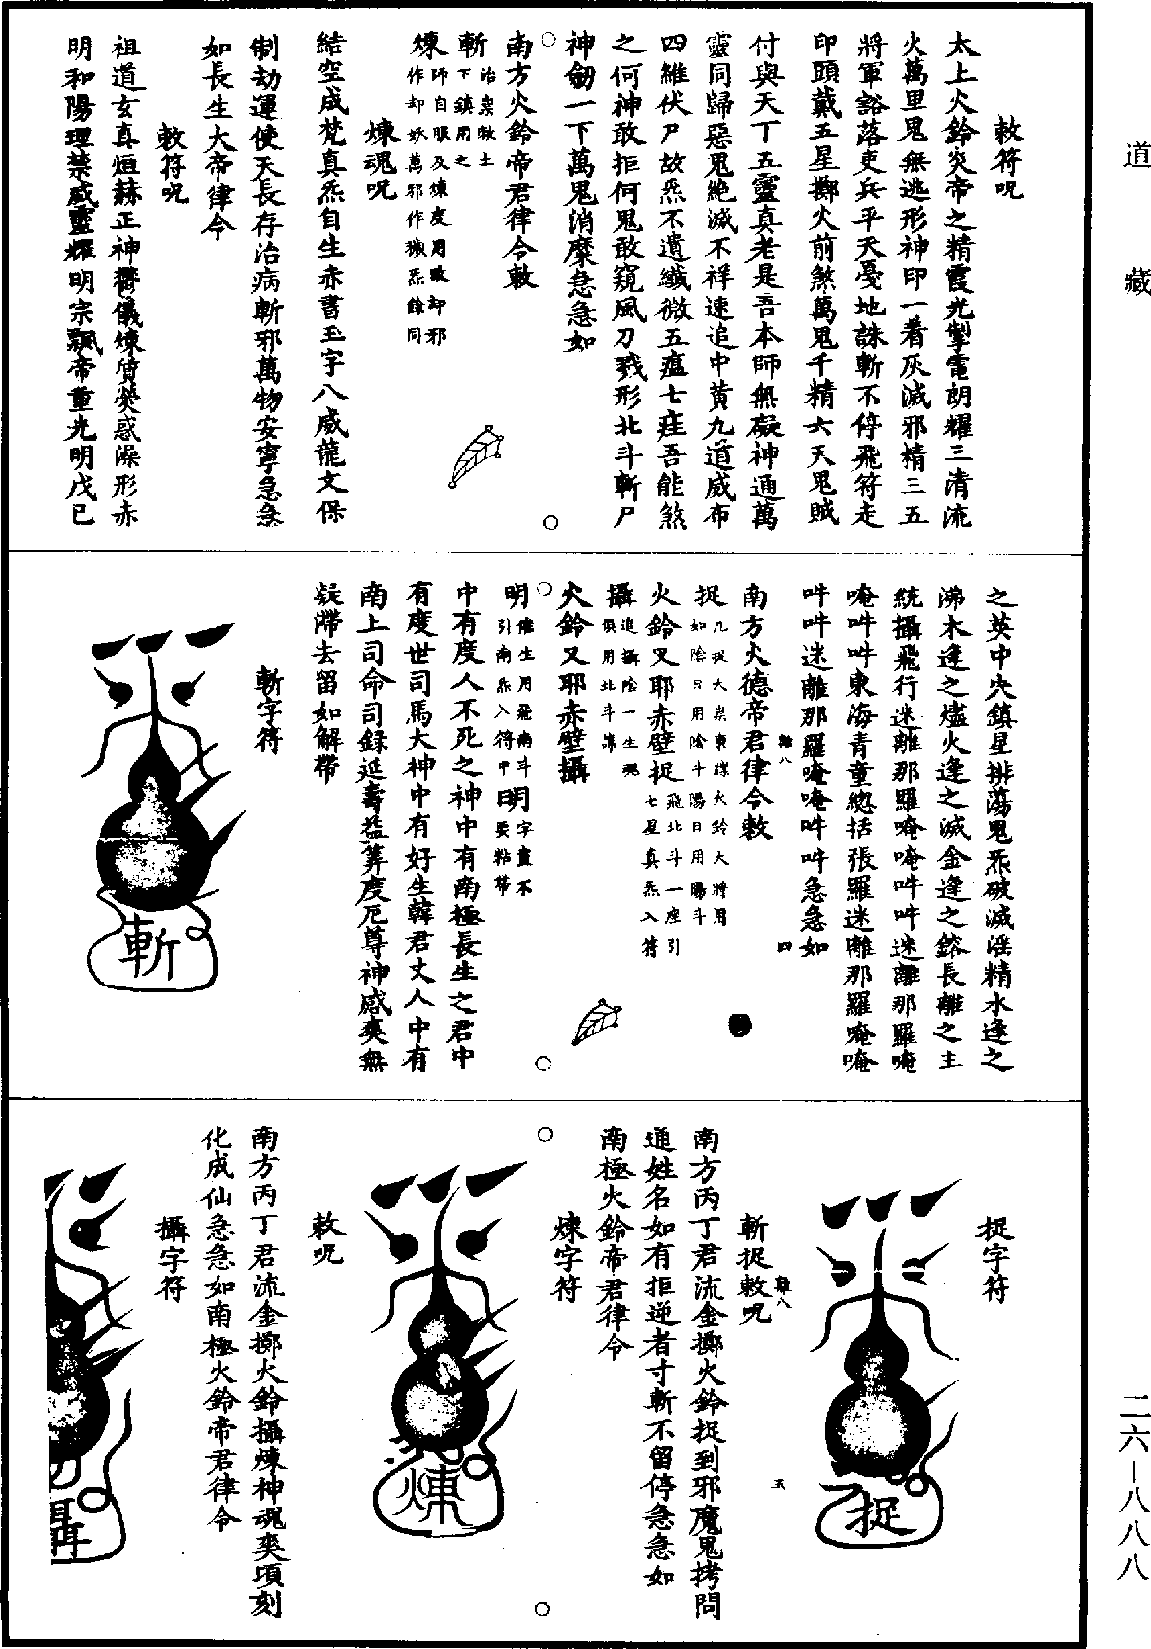 道藏
二六—八八八
敕符呪
太上火鈴炎帝之精霞光掣電朗耀三清流
火萬里鬼無逃形神印一着灰滅邪精三五
將軍豁落吏兵平天憂地誅斬不停飛符走
印頭戴五星擲火前煞萬鬼千精六天鬼賊
付與天丁五靈真老是吾本師無礙神通萬
靈同歸惡鬼絶滅不祥速追中黃九道威布
四維伏尸故炁不遺纖微五瘟七瘧吾能煞
之何神敢拒何鬼敢窺風刀戮形北斗斬尸
神劒一下萬鬼消糜急急如
南方火鈴帝君律令敕
斬治祟獄土下鎮用之
煉師自服及煉度用噉却邪作却妖萬邪作獺炁餘同
煉魂呪
結空成梵真炁自生赤書玉字八威龍文保
制劫運使天長存治病斬邪萬物安寧急急
如長生大帝律令
敕符呪
祖道玄真烜赫正神欝儀煉質熒惑澡形赤
明和陽理禁威靈耀明宗飄帝重光明戊己
之英中央鎮星排蕩鬼炁破滅滛精水逢之
沸木逢之燼火逢之滅金逢之鎔長離之主
統攝飛行迷離那羅唵唵吽吽迷離那羅唵
唵吽吽東海青童總括張羅迷離那羅唵唵
吽吽迷離那羅唵唵吽吽急急如
南方火德帝君律令敕
捉凡捉大祟東㗖火鈴大將用如陰日用陰斗陽日用陽斗
火鈴又耶赤壁捉飛北斗一座引七星真炁入符
攝追攝陰一生魂俱用北斗
火鈴又耶赤壁攝
明催生用飛南斗引南炁入符中明字畫不要粘帶
中有度人不死之神中有南極長生之君中
有度世司馬大神中有好生韓君丈人中有
南上司命司錄延壽益筭度厄尊神感爽無
疑滯去留如解帶
斬字符
斬
捉字符
捉
斬捉敕呪
南方丙丁君流金擲火鈴捉到邪魔鬼拷問
通姓名如有拒逆者寸斬不留停急急如
南極火鈴帝君律令
煉字符
煉
敕呪
南方丙丁君流金擲火鈴攝煉神魂爽頃刻
化成仙急急如南極火鈴帝君律令
攝字符